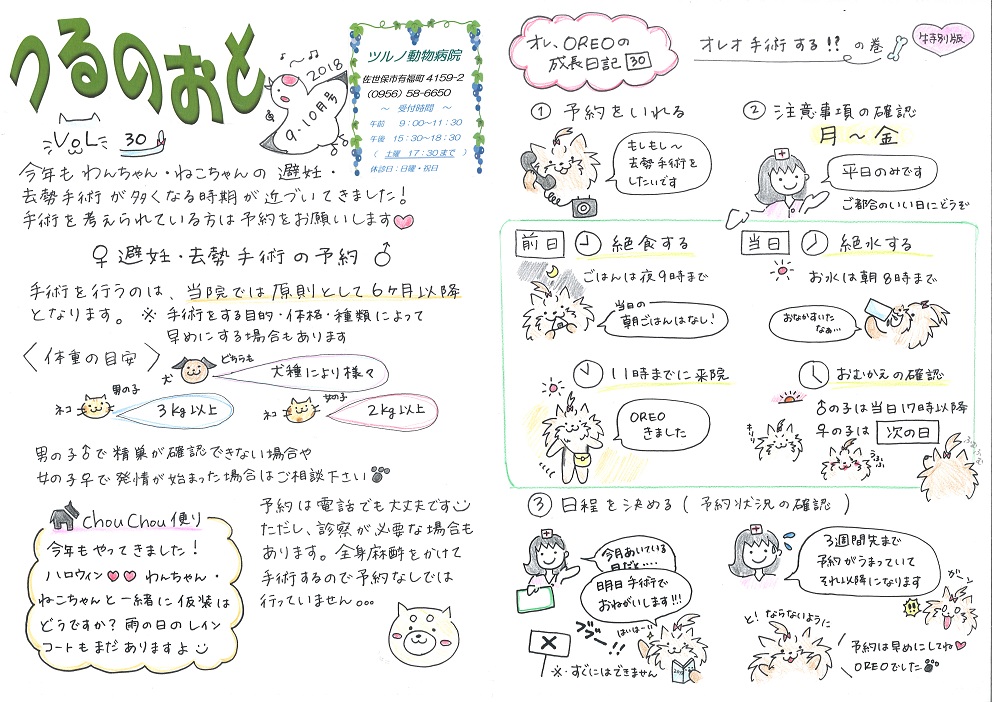 つるのおと
VOL 30
2018
9.10月号
ツルノ動物病院
佐世保市有福町4159-2
(0956) 58-6650
～ 受付時間 ～
午前 9：00～11：30
午後 15：30～18：30
( 土曜 17：30まで )
休診日：日曜・祝日
今年も わんちゃん・ねこちゃんの 避妊・
去勢手術 が多くなる時期が 近づいてきました！
手術を考えられている方は予約をお願いします
♀避妊・去勢 手術の予約♂
手術を行うのは、当院では原則として6ヶ月以降
となります。 ※ 手術をする目的・体格・種類によって
早めにする場合もあります
〈体重の目安〉
犬
どちらも
犬種により様々
ネコ
男の子
3kg以上
ネコ
女の子
2kg以上
男の子♂で精巣が確認できない場合や
女の子♀で発情が始まった場合はご相談下さい
chouchou便り
今年もやってきました！
ハロウィン わんちゃん・
ねこちゃんと一緒に仮装は
どうですか？雨の日のレイン
コートもまだありますよ
予約は電話でも大丈夫です
ただし、診察が必要な場合も
あります。全身麻酔をかけて
手術するので予約なしでは
行っていません。。。
オレ、OREOの
成長日記 30
オレオ手術する!? の巻
特別版
① 予約をいれる
もしもし～
去勢手術を
したいです
② 注意事項の確認
月～金
平日のみです
ご都合のいい日にどうぞ
前日
絶食する
ごはんは夜9時まで
当日の
朝ごはんはなし！
当日
絶水する
お水は朝8時まで
おなかすいた
なぁ…
11時までに来院
OREO
きました
おむかえの確認
♂の子は当日17時以降
♀の子は 次の日
きりっ
うふ
③ 日程を決める ( 予約状況の確認 )
今月あいている
日だと‥‥
明日手術で
おねがいします!!!
ブブー!!
はいはーい
×
※・すぐにはできません
3週間先まで
予約がうまっていて
それ以降になります
ガーン
と、ならないように
予約は早めにしてね
OREOでした